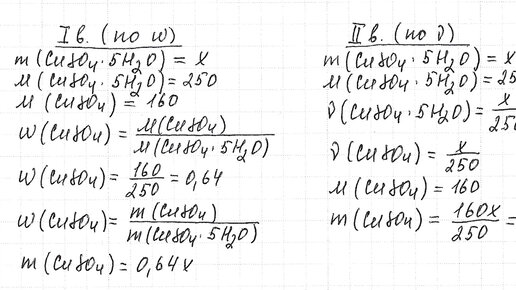 I в. (по w)
m (CuSO₄ · 5H₂O) = x
M (CuSO₄ · 5H₂O) = 250
M (CuSO₄) = 160
w (CuSO₄) = M(CuSO₄) / M(CuSO₄ · 5H₂O)
w (CuSO₄) = 160 / 250 = 0,64
w (CuSO₄) = m(CuSO₄) / m(CuSO₄ · 5H₂O)
m (CuSO₄) = 0,64x
II в. (по ν)
m (CuSO₄ · 5H₂O) = x
M (CuSO₄ · 5H₂O) = 25
ν (CuSO₄ · 5H₂O) = x / 250
ν (CuSO₄) = x / 250
M (CuSO₄) = 160
m (CuSO₄) = 160x / 250 =